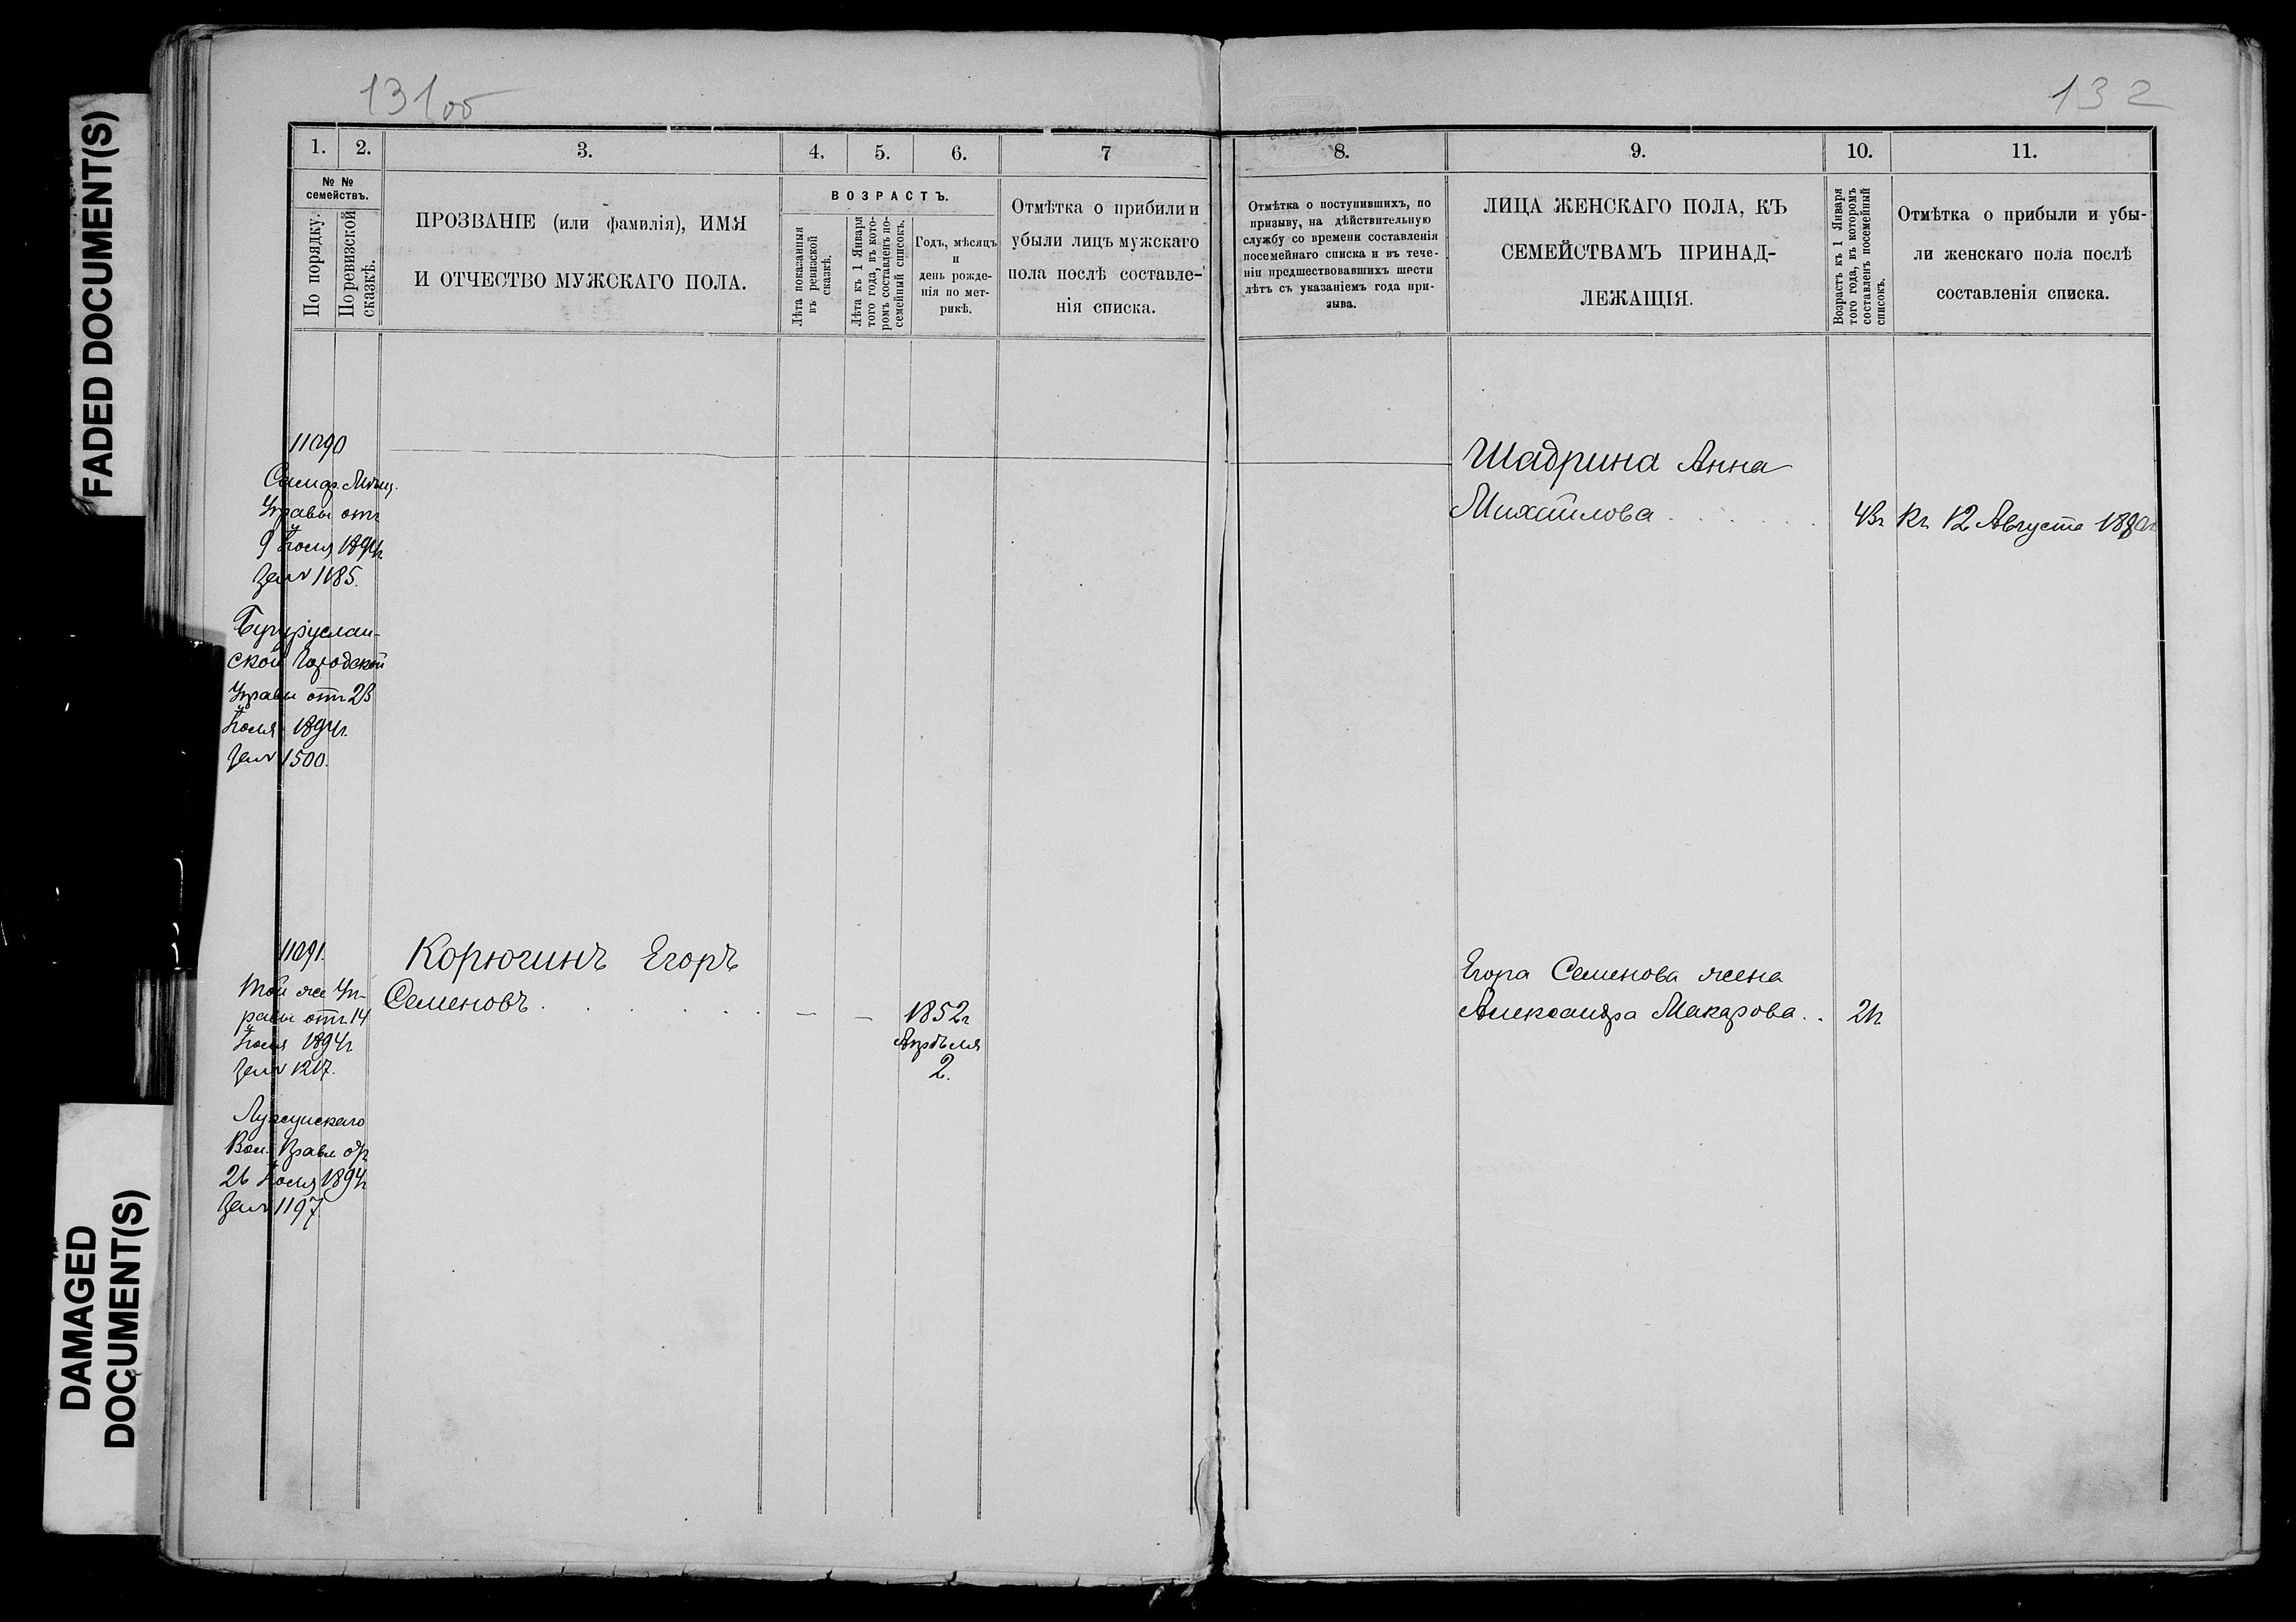 131об
132
FADED DOCUMENT(S)
DAMAGED
DOCUMENT(S)
1.
2.
3.
4.
5.
6.
7
№ №
семействъ.
По порядку.
По ревизской
сказкѣ.
ПРОЗВАНІЕ (или фамилія), ИМЯ
И ОТЧЕСТВО МУЖСКАГО ПОЛА.
ВОЗРАСТЪ.
Лѣта показанныя
въ ревизской
сказкѣ.
Лѣта къ 1 Января
того года, въ кото-
ромъ составленъ по-
семейный списокъ.
Годъ, мѣсяцъ
и
день рожде-
нія по мет-
рикѣ.
Отмѣтка о прибыли и
убыли лицъ мужскаго
пола послѣ составле-
нія списка.
8.
9.
10.
11.
Отмѣтка о поступившихъ, по
призыву, на дѣйствительную
службу со времени составленія
посемейнаго списка и въ тече-
ніи предшествовавшихъ шести
лѣтъ съ указаніемъ года при-
зыва.
ЛИЦА ЖЕНСКАГО ПОЛА, КЪ
СЕМЕЙСТВАМЪ ПРИНАД-
ЛЕЖАЩІЯ.
Возрастъ къ 1 Января
того года, въ которомъ
составленъ посемейный
списокъ.
Отмѣтка о прибыли и убы-
ли женскаго пола послѣ
составленія списка.
11090
Самар. Мѣщ.
Управы отъ
9 Іюля 1894г.
за № 1185.
Бугуруслан-
ской Городской
Управы отъ 23
Іюля 1894г.
за № 1500.
Шадрина Анна
Михайлова
43г
къ 12 Августа
11091.
Той же Уп-
равы отъ 14
Іюля 1894г
за № 1217.
Вол. Правл. отъ
26 Іюля 1894г
за № 1197.
Корюгинъ Егоръ
Семеновъ
1852г
Апрѣля
2.
Егора Семенова жена
Александра Макарова